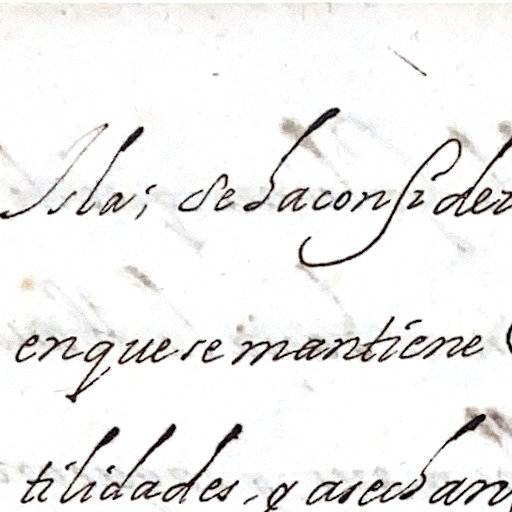 Isla; se ha consider
en que se mantiene
tilidades, y asechan